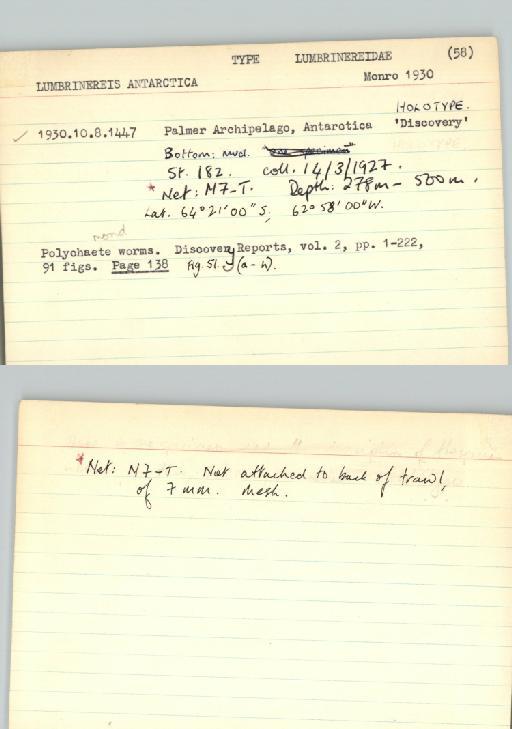 TYPE LUMBRINEREIDAE (58)
LUMBRINEREIS ANTARCTICA Monro 1930
HOLOTYPE.
1930.10.8.1447 Palmer Archipelago, Antarotica 'Discovery'
Bottom: mud. "one specimen"
St. 182. coll. 14/3/1927.
* Net: M7-T. Depth: 278m - 500m.
Lat. 64° 21' 00" S, 62° 58' 00" W.
Polychaete worms. Discovery Reports, vol. 2, pp. 1-222,
91 figs. Page 138 Fig. 51. (a-h).
* Net: N7-T. Net attached to back of trawl,
of 7 mm. mesh.